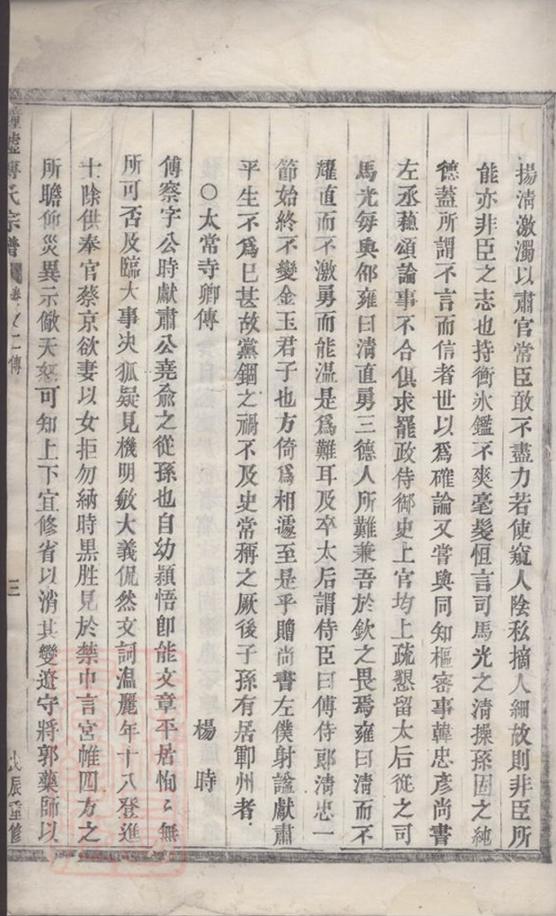 揚清激濁以肅官常臣敢不盡力若使窺人陰私摘人細故則非臣所
能亦非臣之志也持衡氷鑑不爽毫髮恒言司馬光之清操孫固之純
德蓋所謂不言而信者世以爲確論又嘗與同知樞密事韓忠彥尚書
左丞蘓頌論事不合俱求罷政侍御史上官均上疏懇留太后從之司
馬光每與邵雍曰清直勇三德人所難兼吾於欽之畏焉雍曰清而不
耀直而不激勇而能温是爲難耳及卒太后謂侍臣曰傅侍郞清忠一
節始終不變金玉君子也方倚爲相遽至是乎贈尚書左僕射諡獻肅
平生不爲已甚故黨錮之禍不及史常稱之厥後子孫有居鄆州者
○太常寺卿傳 楊時
傅察字公時獻肅公堯兪之從孫也自幼穎悟卽能文章平居恂〻無
所可否及臨大事决狐疑見機明敏大義侃然文詞温麗年十八登進
士除供奉官蔡京欲妻以女拒勿納時黒胜見於禁中言宮帷四方之
所瞻仰災異示儆天怒可知上下宜修省以消其變遼守將郭藥師以
傅氏宗譜 卷之二傳 三 戊辰重修